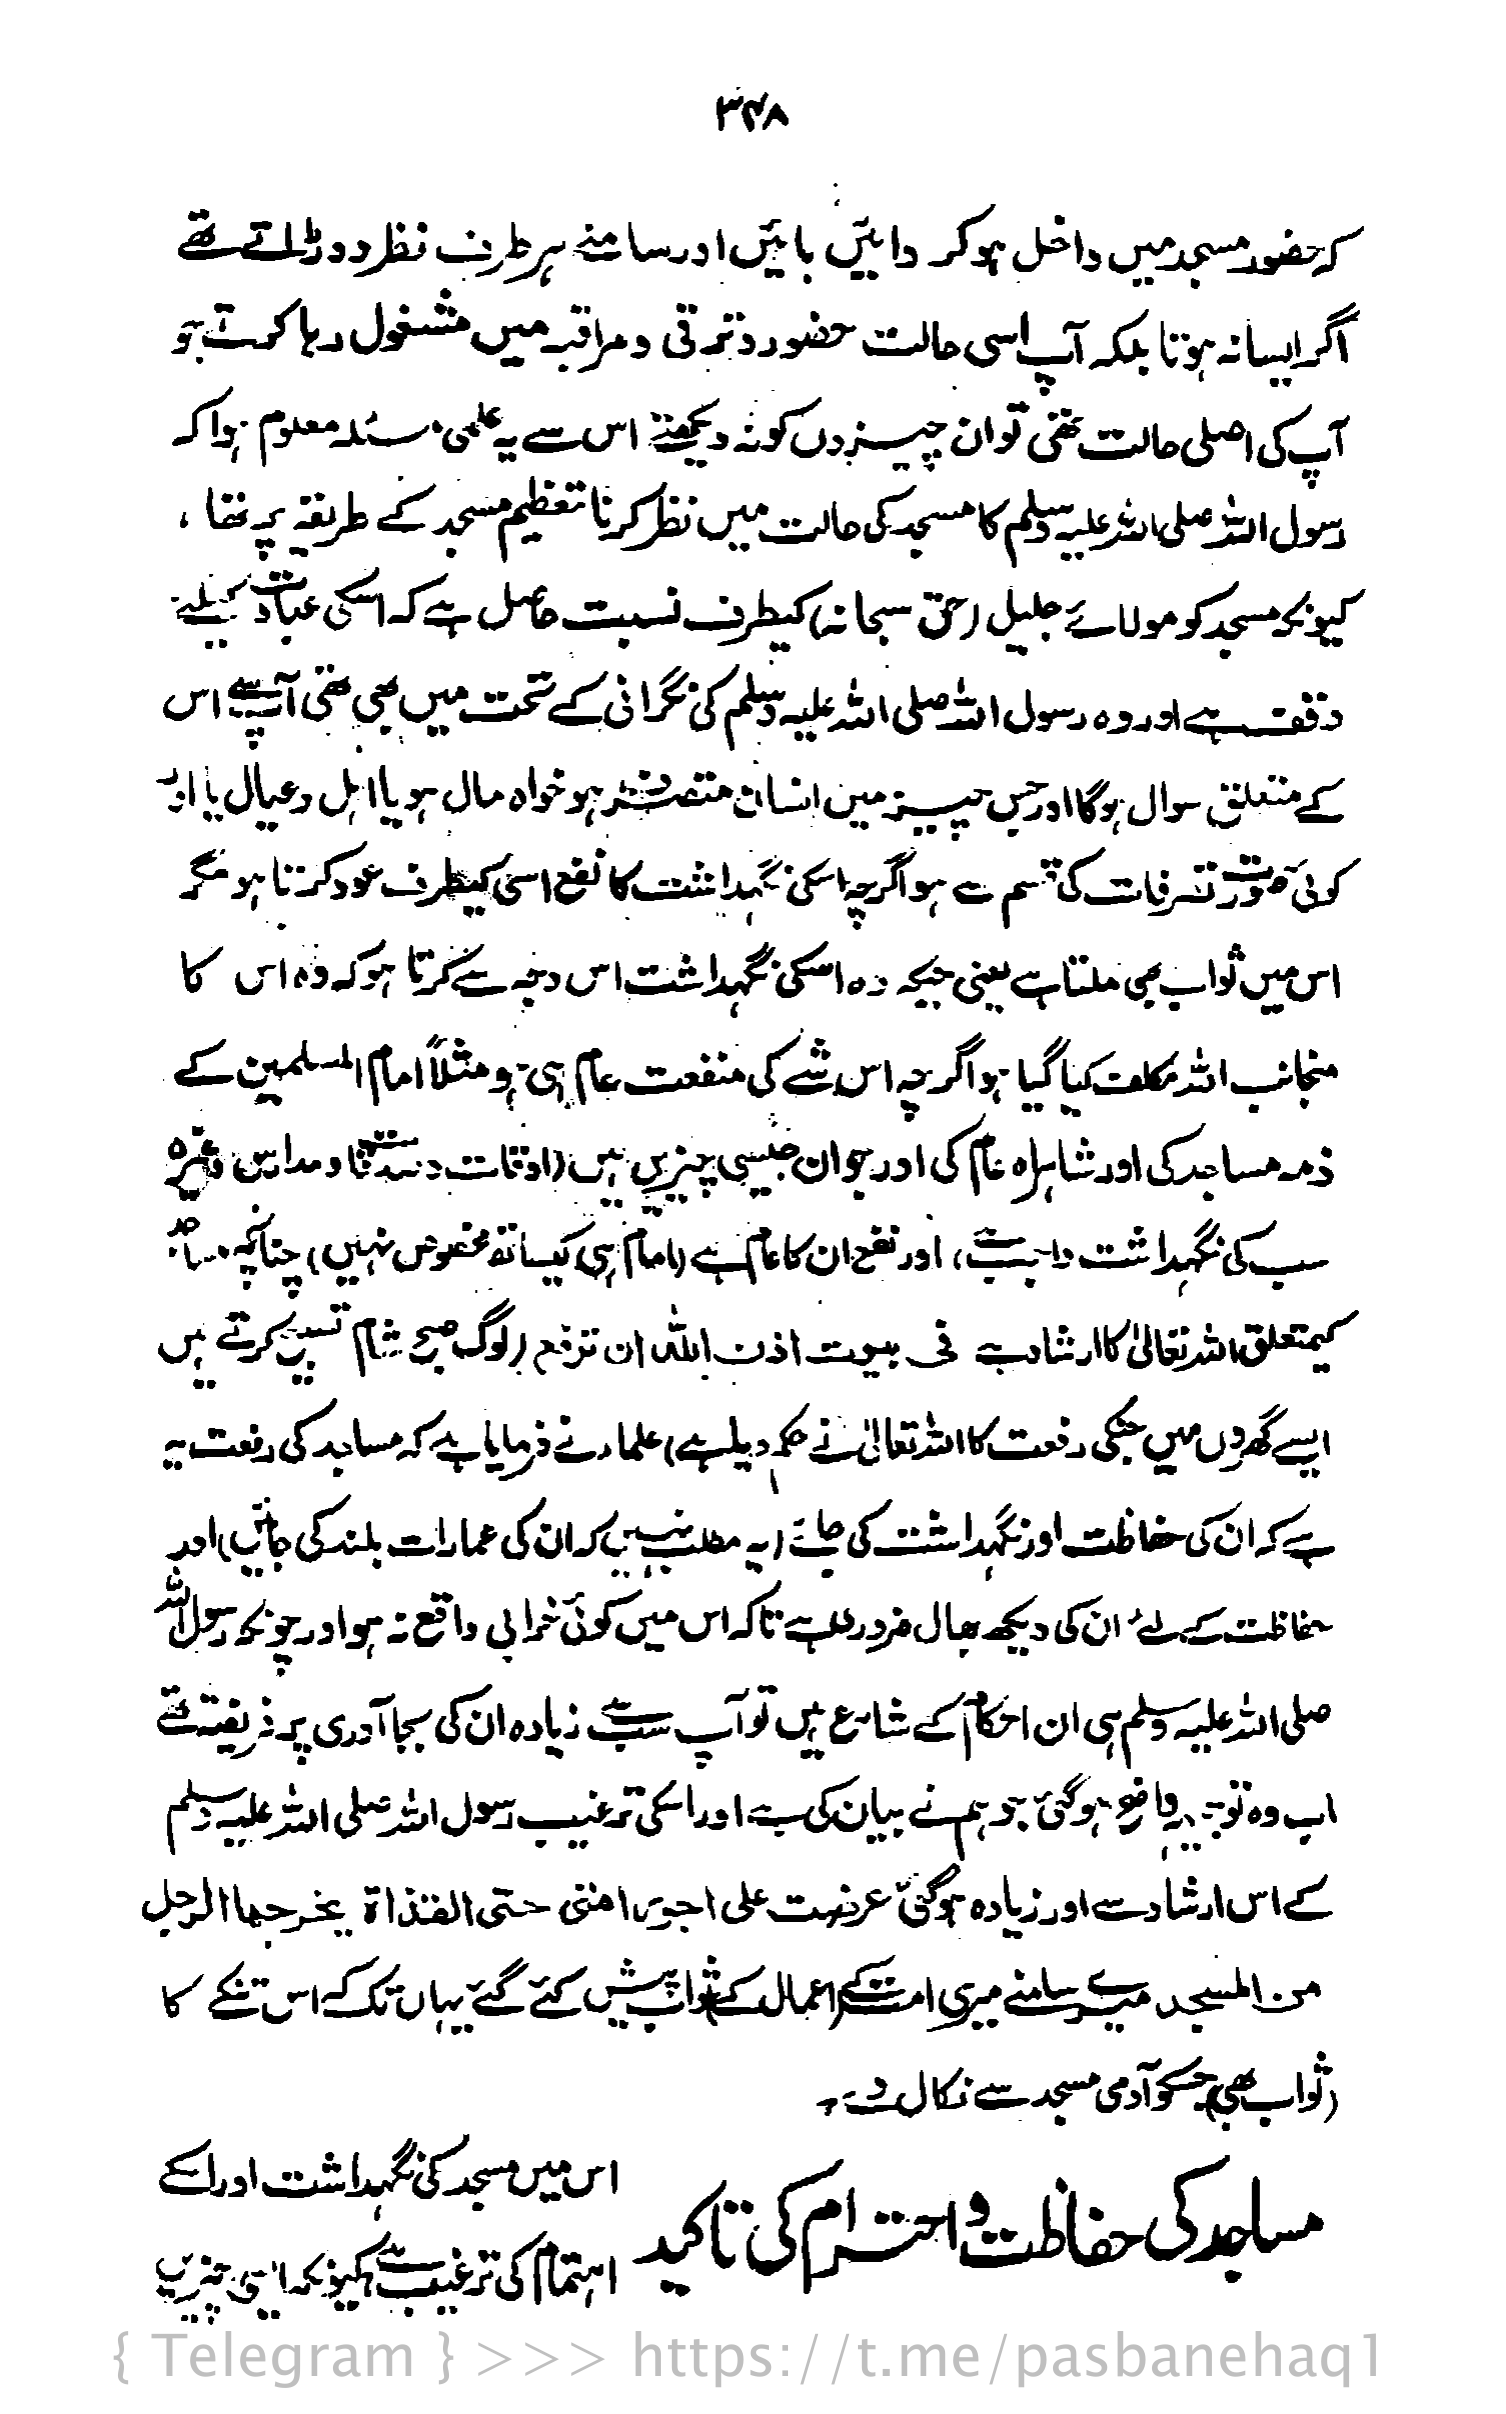 ۳۴۸
کہ حضور مسجد میں داخل ہوکر دائیں بائیں اور سامنے ہر طرف نظر دوڑاتے تھے
اگر ایسا نہ ہوتا بلکہ آپ اسی حالت حضور و ترقی و مراقبہ میں مشغول رہا کرتے جو
آپ کی اصلی حالت تھی تو ان چیزوں کو نہ دیکھتے اس سے یہ علمی مسئلہ معلوم ہوا کہ
رسول اللہ صلی اللہ علیہ وسلم کا مسجد کی حالت میں نظر کرنا تعظیم مسجد کے طریقہ پر تھا ،
کیونکہ مسجد کو مولائے جلیل (حق سبحانہ) کیطرف نسبت حاصل ہے کہ اسکی عبادت کیلئے
وقف ہے اور وہ رسول اللہ صلی اللہ علیہ وسلم کی نگرانی کے تحت میں بھی تھی آپ سے اس
کے متعلق سوال ہوگا اور جس چیز میں انسان متصرف ہو خواہ مال ہو یا اہل و عیال یا اور
کوئی صورت تصرفات کی قسم سے ہو اگرچہ اسکی نگہداشت کا نفع اسی کیطرف عود کرتا ہو مگر
اس میں ثواب بھی ملتا ہے یعنی جبکہ وہ اسکی نگہداشت اس وجہ سے کرتا ہو کہ وہ اس کا
منجانب اللہ مکلف کیا گیا ہو اگرچہ اس شے کی منفعت عام ہی ہو مثلاً امام المسلمین کے
ذمہ مساجد کی اور شاہراہ عام کی اور جو ان جیسی چیزیں ہیں (اوقات و مدارس وغیرہ
سب کی نگہداشت واجب ہے، اور نفع ان کا عام ہے (امام ہی کیساتھ مخصوص نہیں) چنانچہ مساجد
کیمتعلق اللہ تعالیٰ کا ارشاد ہے فی بیوت اذن اللہ ان ترفع (لوگ صبح شام تسبیح کرتے ہیں
ایسے گھروں میں جنکی رفعت کا اللہ تعالیٰ نے حکم دیا ہے) علماء نے فرمایا ہے کہ مساجد کی رفعت یہ
ہے کہ ان کی حفاظت اور نگہداشت کی جائے (یہ مطلب نہیں کہ ان کی عمارات بلند کی جائیں) اور
حفاظت کے لئے ان کی دیکھ بھال ضروری ہے تاکہ اس میں کوئی خرابی واقع نہ ہو اور چونکہ رسول اللہ
صلی اللہ علیہ وسلم ہی ان احکام کے شارع ہیں تو آپ سب سے زیادہ ان کی بجا آوری پر فریفتہ تھے
اب وہ توجیہ واضح ہوگئی جو ہم نے بیان کی ہے اور اسکی ترغیب رسول اللہ صلی اللہ علیہ وسلم
کے اس ارشاد سے اور زیادہ ہوگئی عرضت علی اجور امتی حتی القذاۃ یخرجها الرجل
من المسجد میرے سامنے میری امت کے (اعمال کے) ثواب پیش کئے گئے یہاں تک کہ اس تنکے کا
(ثواب بھی) جسکو آدمی مسجد سے نکال دے۔
مساجد کی حفاظت و احترام کی تاکید
اس میں مسجد کی نگہداشت اور اسکے
اہتمام کی ترغیب ہے کیونکہ ایسی چیزیں
{ Telegram } >>> https://t.me/pasbanehaq1